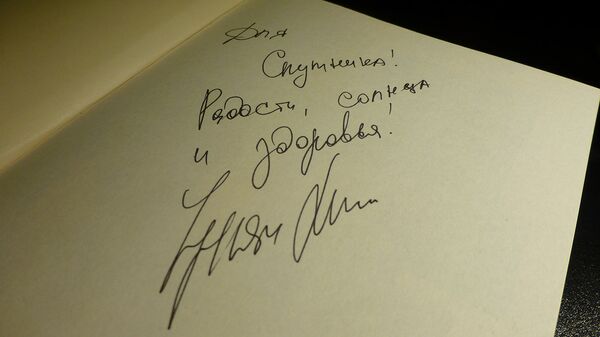 Для
Спутника!
Радости, солнца
и здоровья!